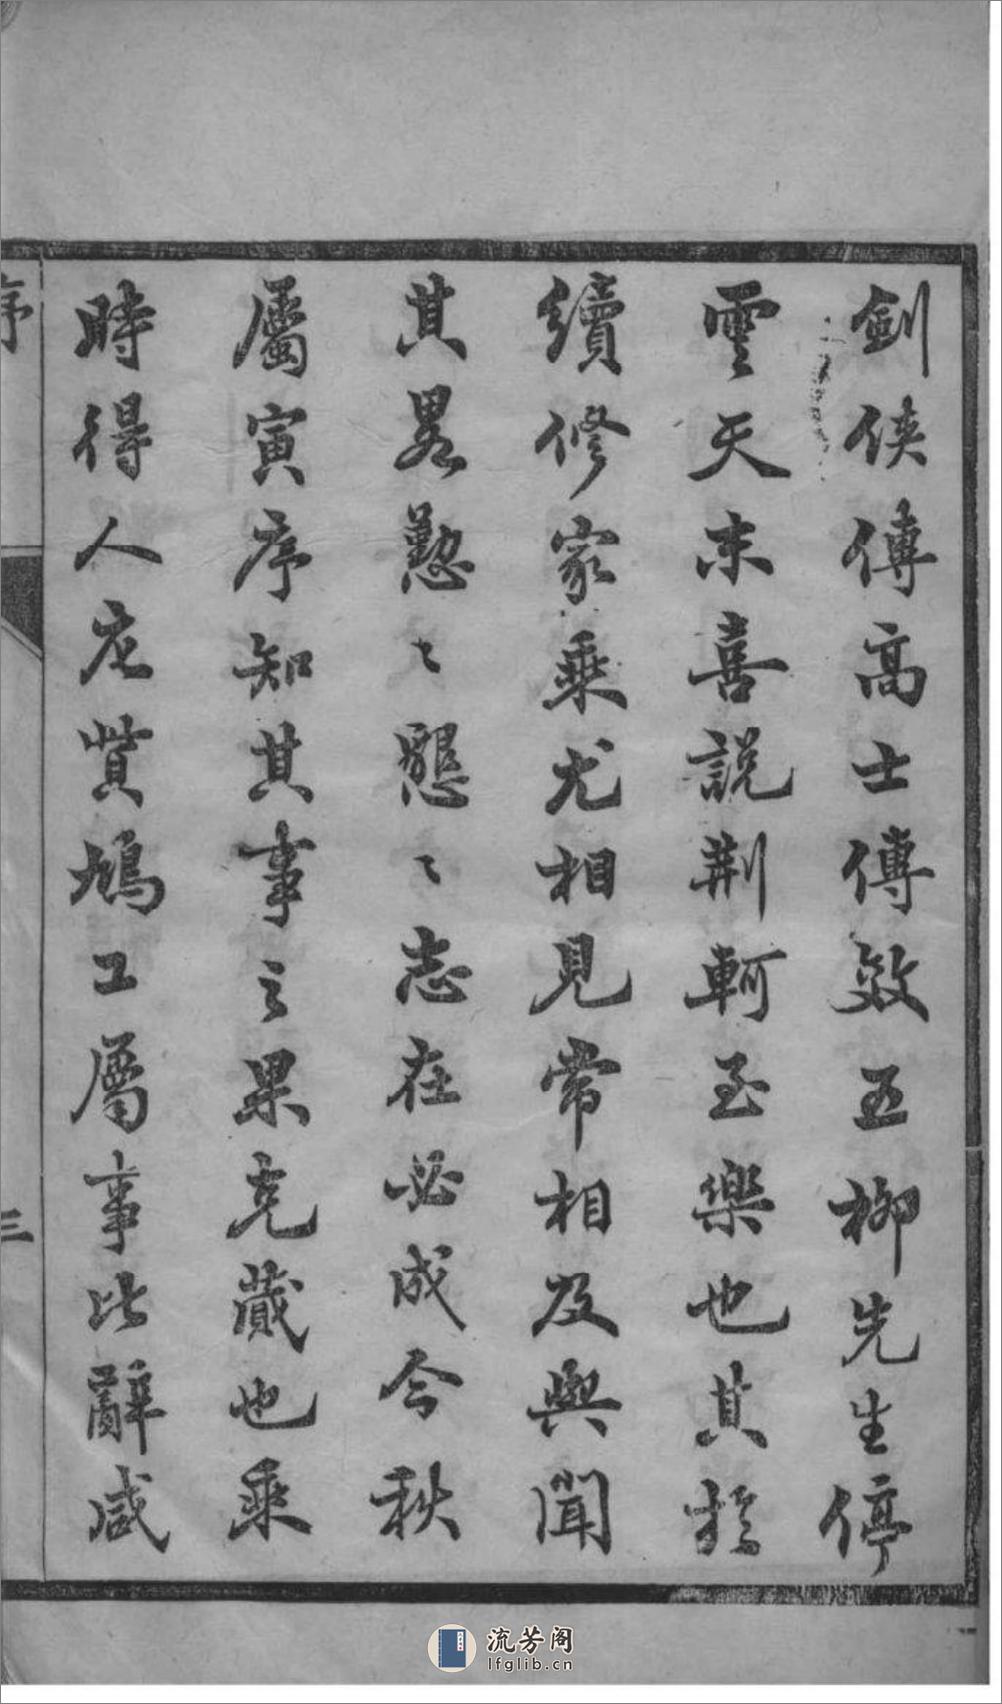 劍俠傳高士傳效五柳先生停
雲天末喜說荆軻至樂也其於
續修家乘尤相見常相及與聞
其畧懃〻懇〻志在必成今秋
屬寅序知其事之果克蕆也乘
時得人庀貲鳩工屬事比辭咸
序
三
流芳阁
lfglib.cn